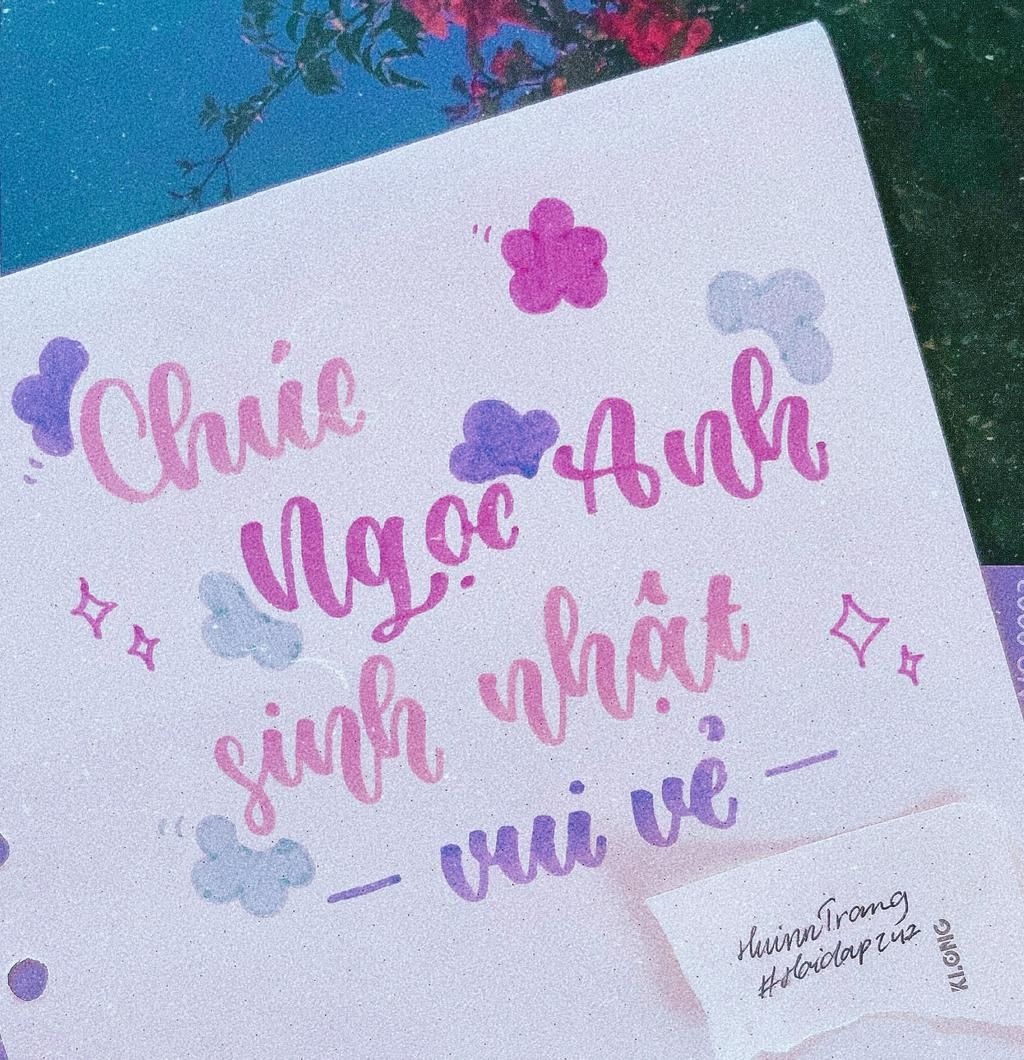 Chúc
Ngọc Anh
sinh nhật
— vui vẻ —
HuinnTrang
#Hoidap247
KLONG